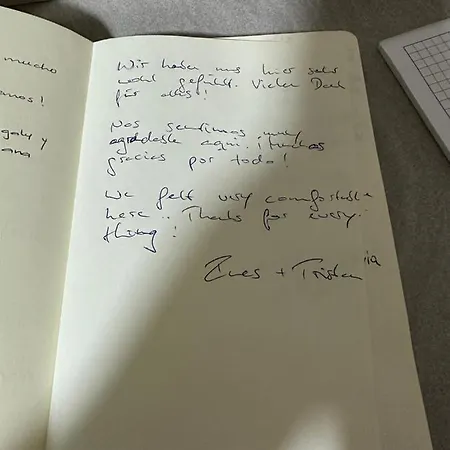 mucho
Wir haben uns hier sehr
wohl gefühlt. Vielen Dank
für alles!
Nos sentimos muy
agradable aquí. ¡Muchas
gracias por todo!
We felt very comfortable
here.. Thanks for every
thing!
+ Tristan